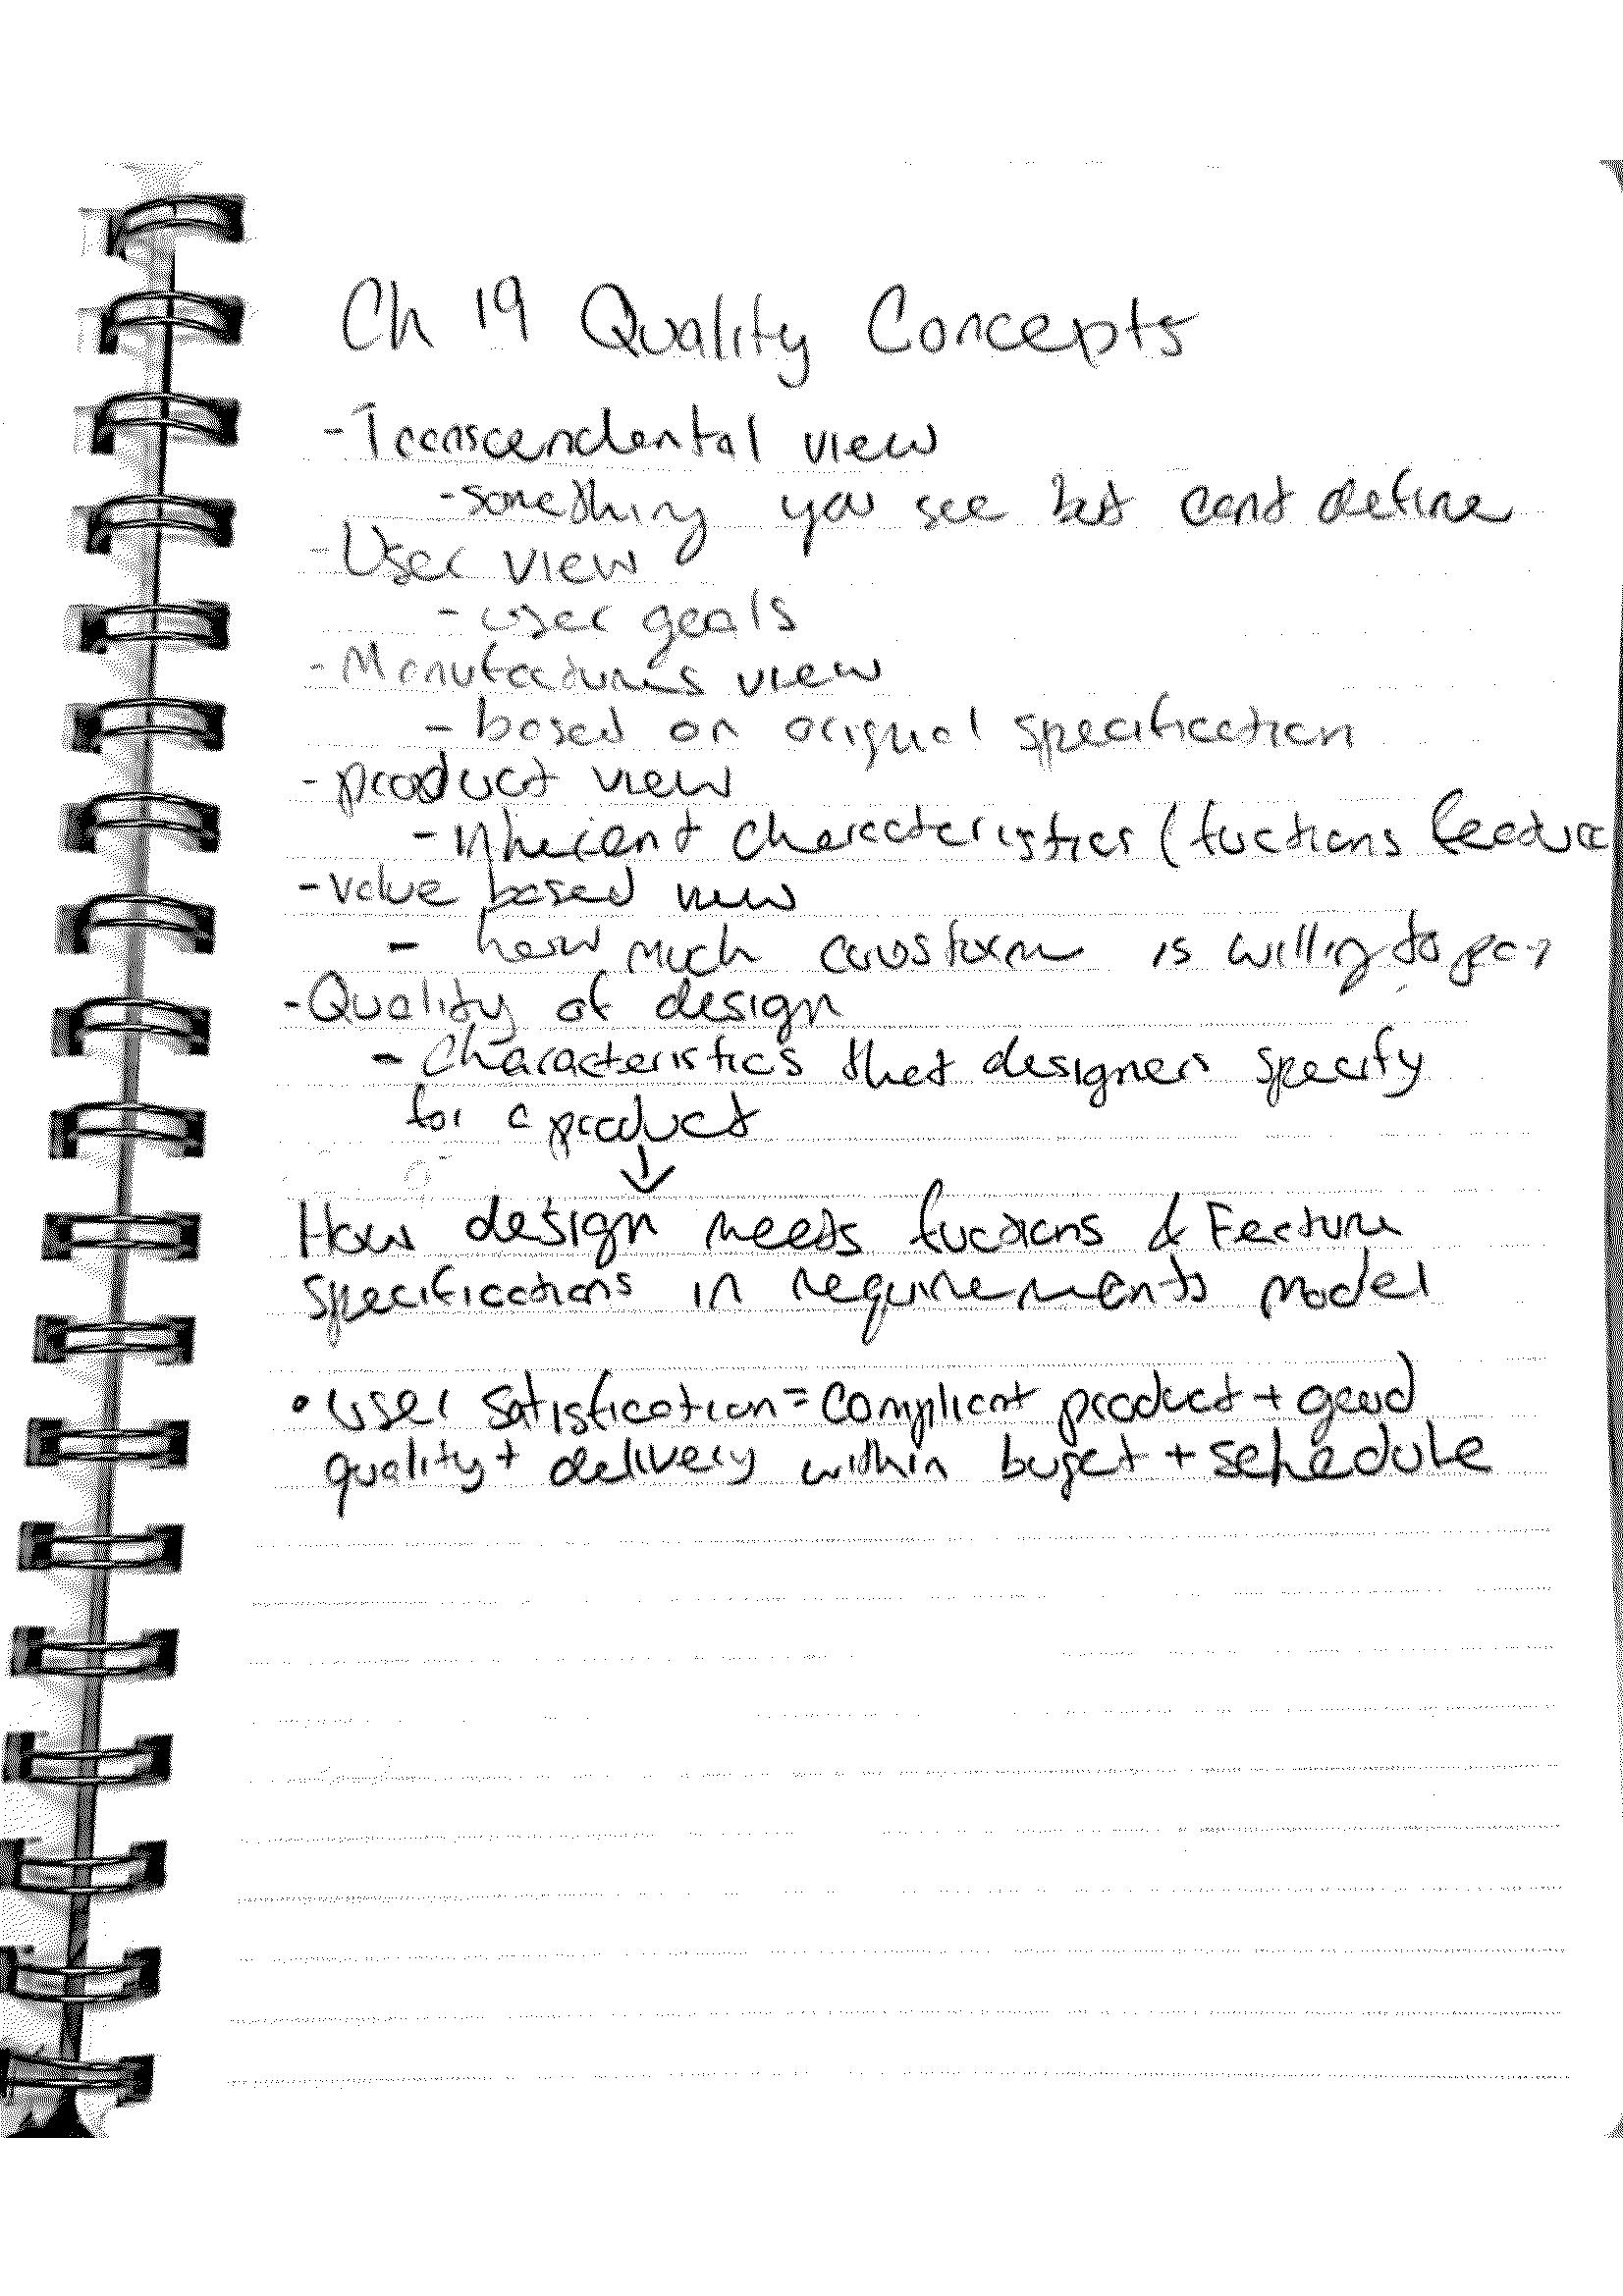 Ch 19 Quality Concepts
- Transcendental view
- something you see but cant define
- User view
- user goals
- Manufactures view
- based on original specification
- product view
- inherient characteristics (fuctions feature
- value based view
- how much is willing to pay
- Quality of design
- Characteristics that designers specify
for a product
↓
How design meets fuctions & Feature
specifications in requirements model
• user satisfication = compliant product + good
quality + delivery within buget + schedule